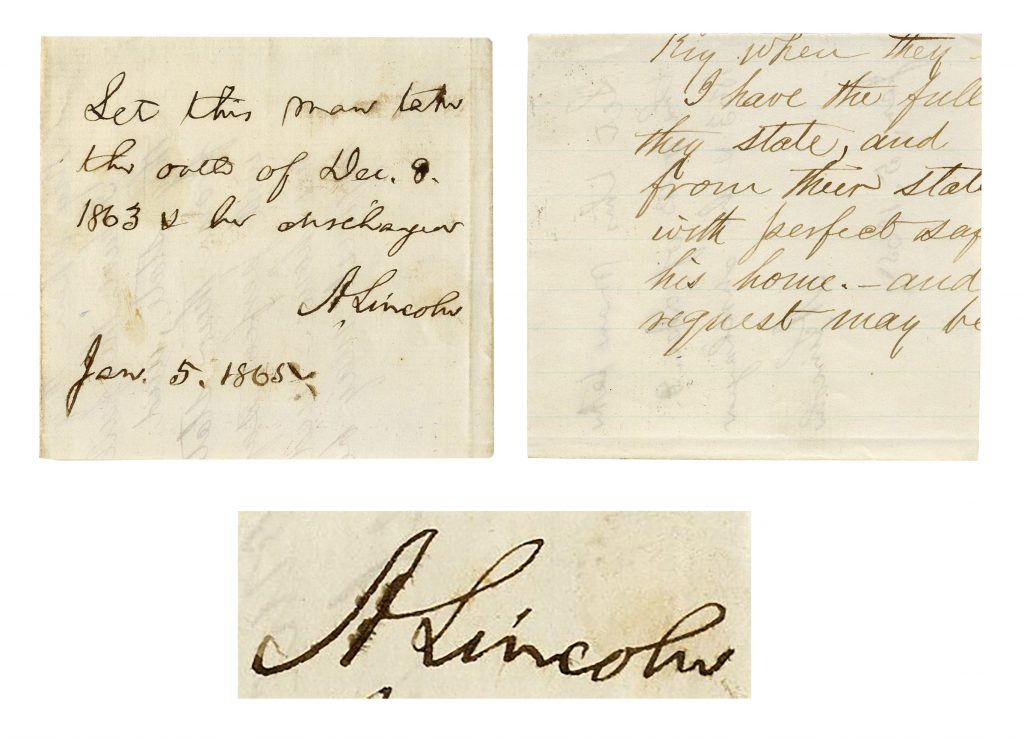 Let this man take
the oath of Dec. 8.
1863 & be discharged
A Lincoln
Jan. 5. 1865
when they
I have the full
they state, and
from their state
with perfect saf
his home. - and
request may be
A Lincoln